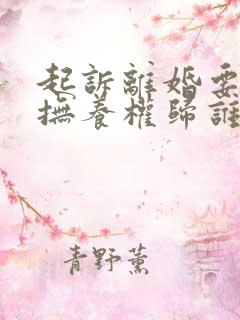 起訴離婚要
撫養權歸誰
青野薰